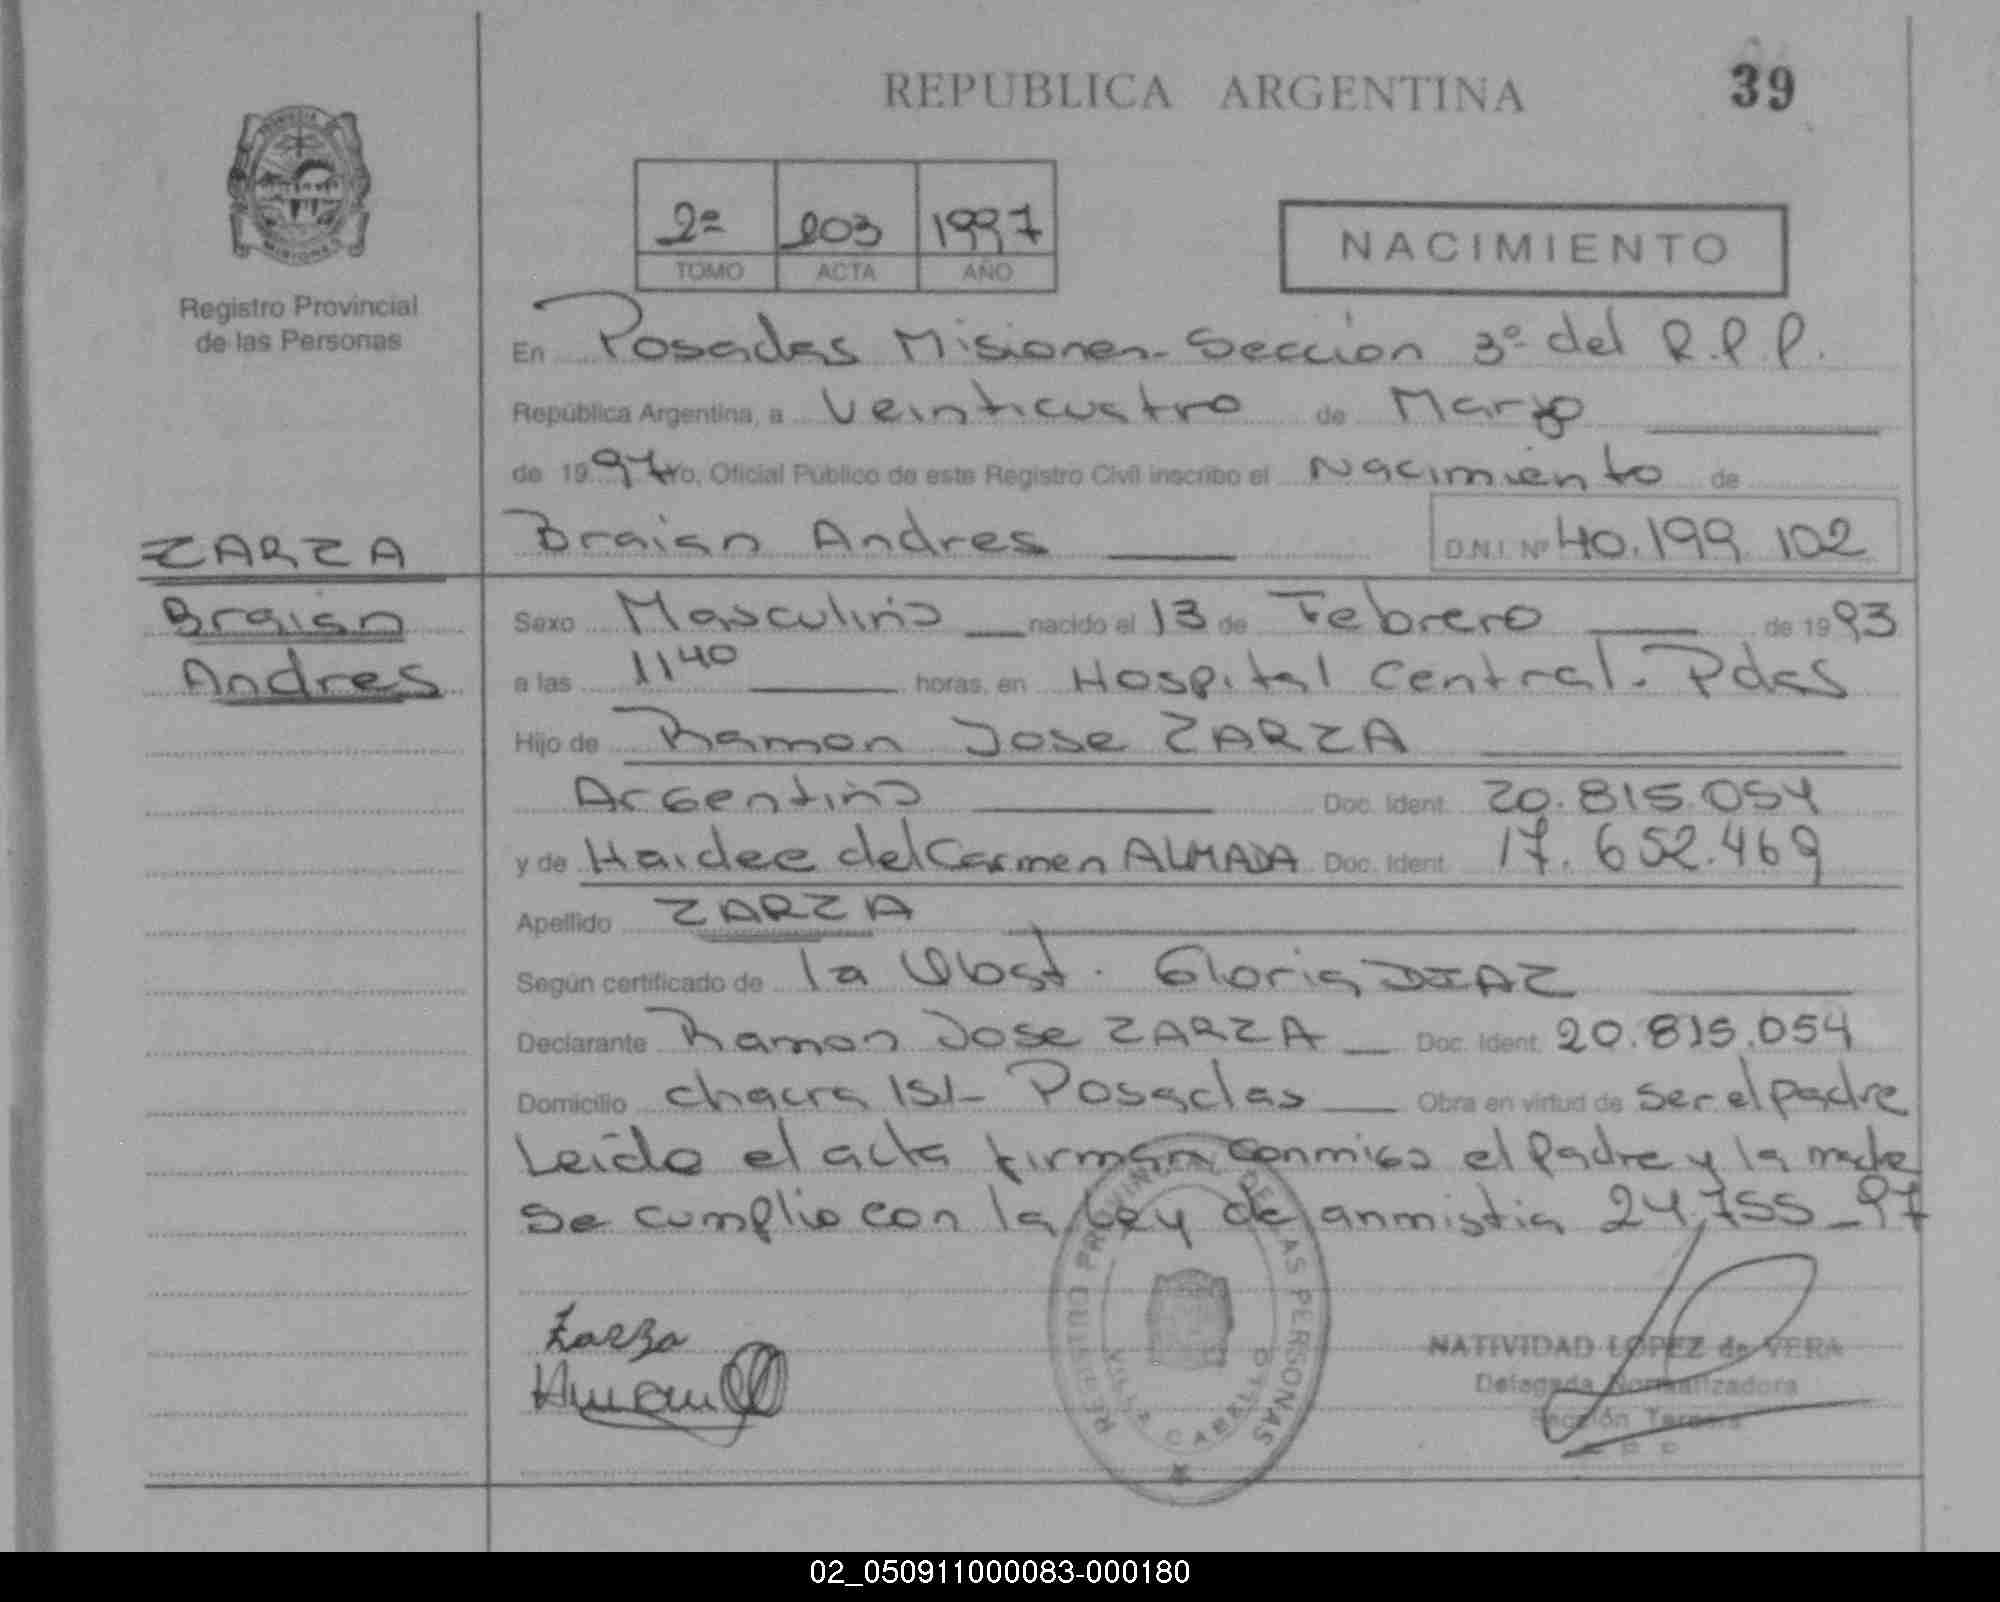 REPUBLICA ARGENTINA
39
Registro Provincial
de las Personas
2º 203 1997
TOMO ACTA AÑO
NACIMIENTO
En Posadas Misiones - Sección 3º del R.P.P.
República Argentina, a Veinticuatro de Marzo
de 1997 Yo, Oficial Público de este Registro Civil inscribo el Nacimiento de
ZARZA
Braian
Andres
Braian Andres D.N.I. Nº 40.199.102
Sexo Masculino nacido el 13 de Febrero de 1993
a las 1140 horas, en Hospital Central. Pdas
Hijo de Ramon Jose ZARZA
Argentino Doc. Ident. 20.815.054
y de Haidee del Carmen ALMADA Doc. Ident. 17.652.469
Apellido ZARZA
Según certificado de la Obst. Gloria DIAZ
Declarante Ramon Jose ZARZA Doc. Ident. 20.815.054
Domicilio chacra 151- Posadas Obra en virtud de ser el padre
Leido el acta firman conmigo el Padre y la madre
Se cumplio con la Ley de anmistia 24.755-97
Zarza
REGISTRO PROVINCIAL DE LAS PERSONAS
VILLA CABELLO
NATIVIDAD LOPEZ de VERA
Delegada Normalizadora
Sección Tercera
02_050911000083-000180